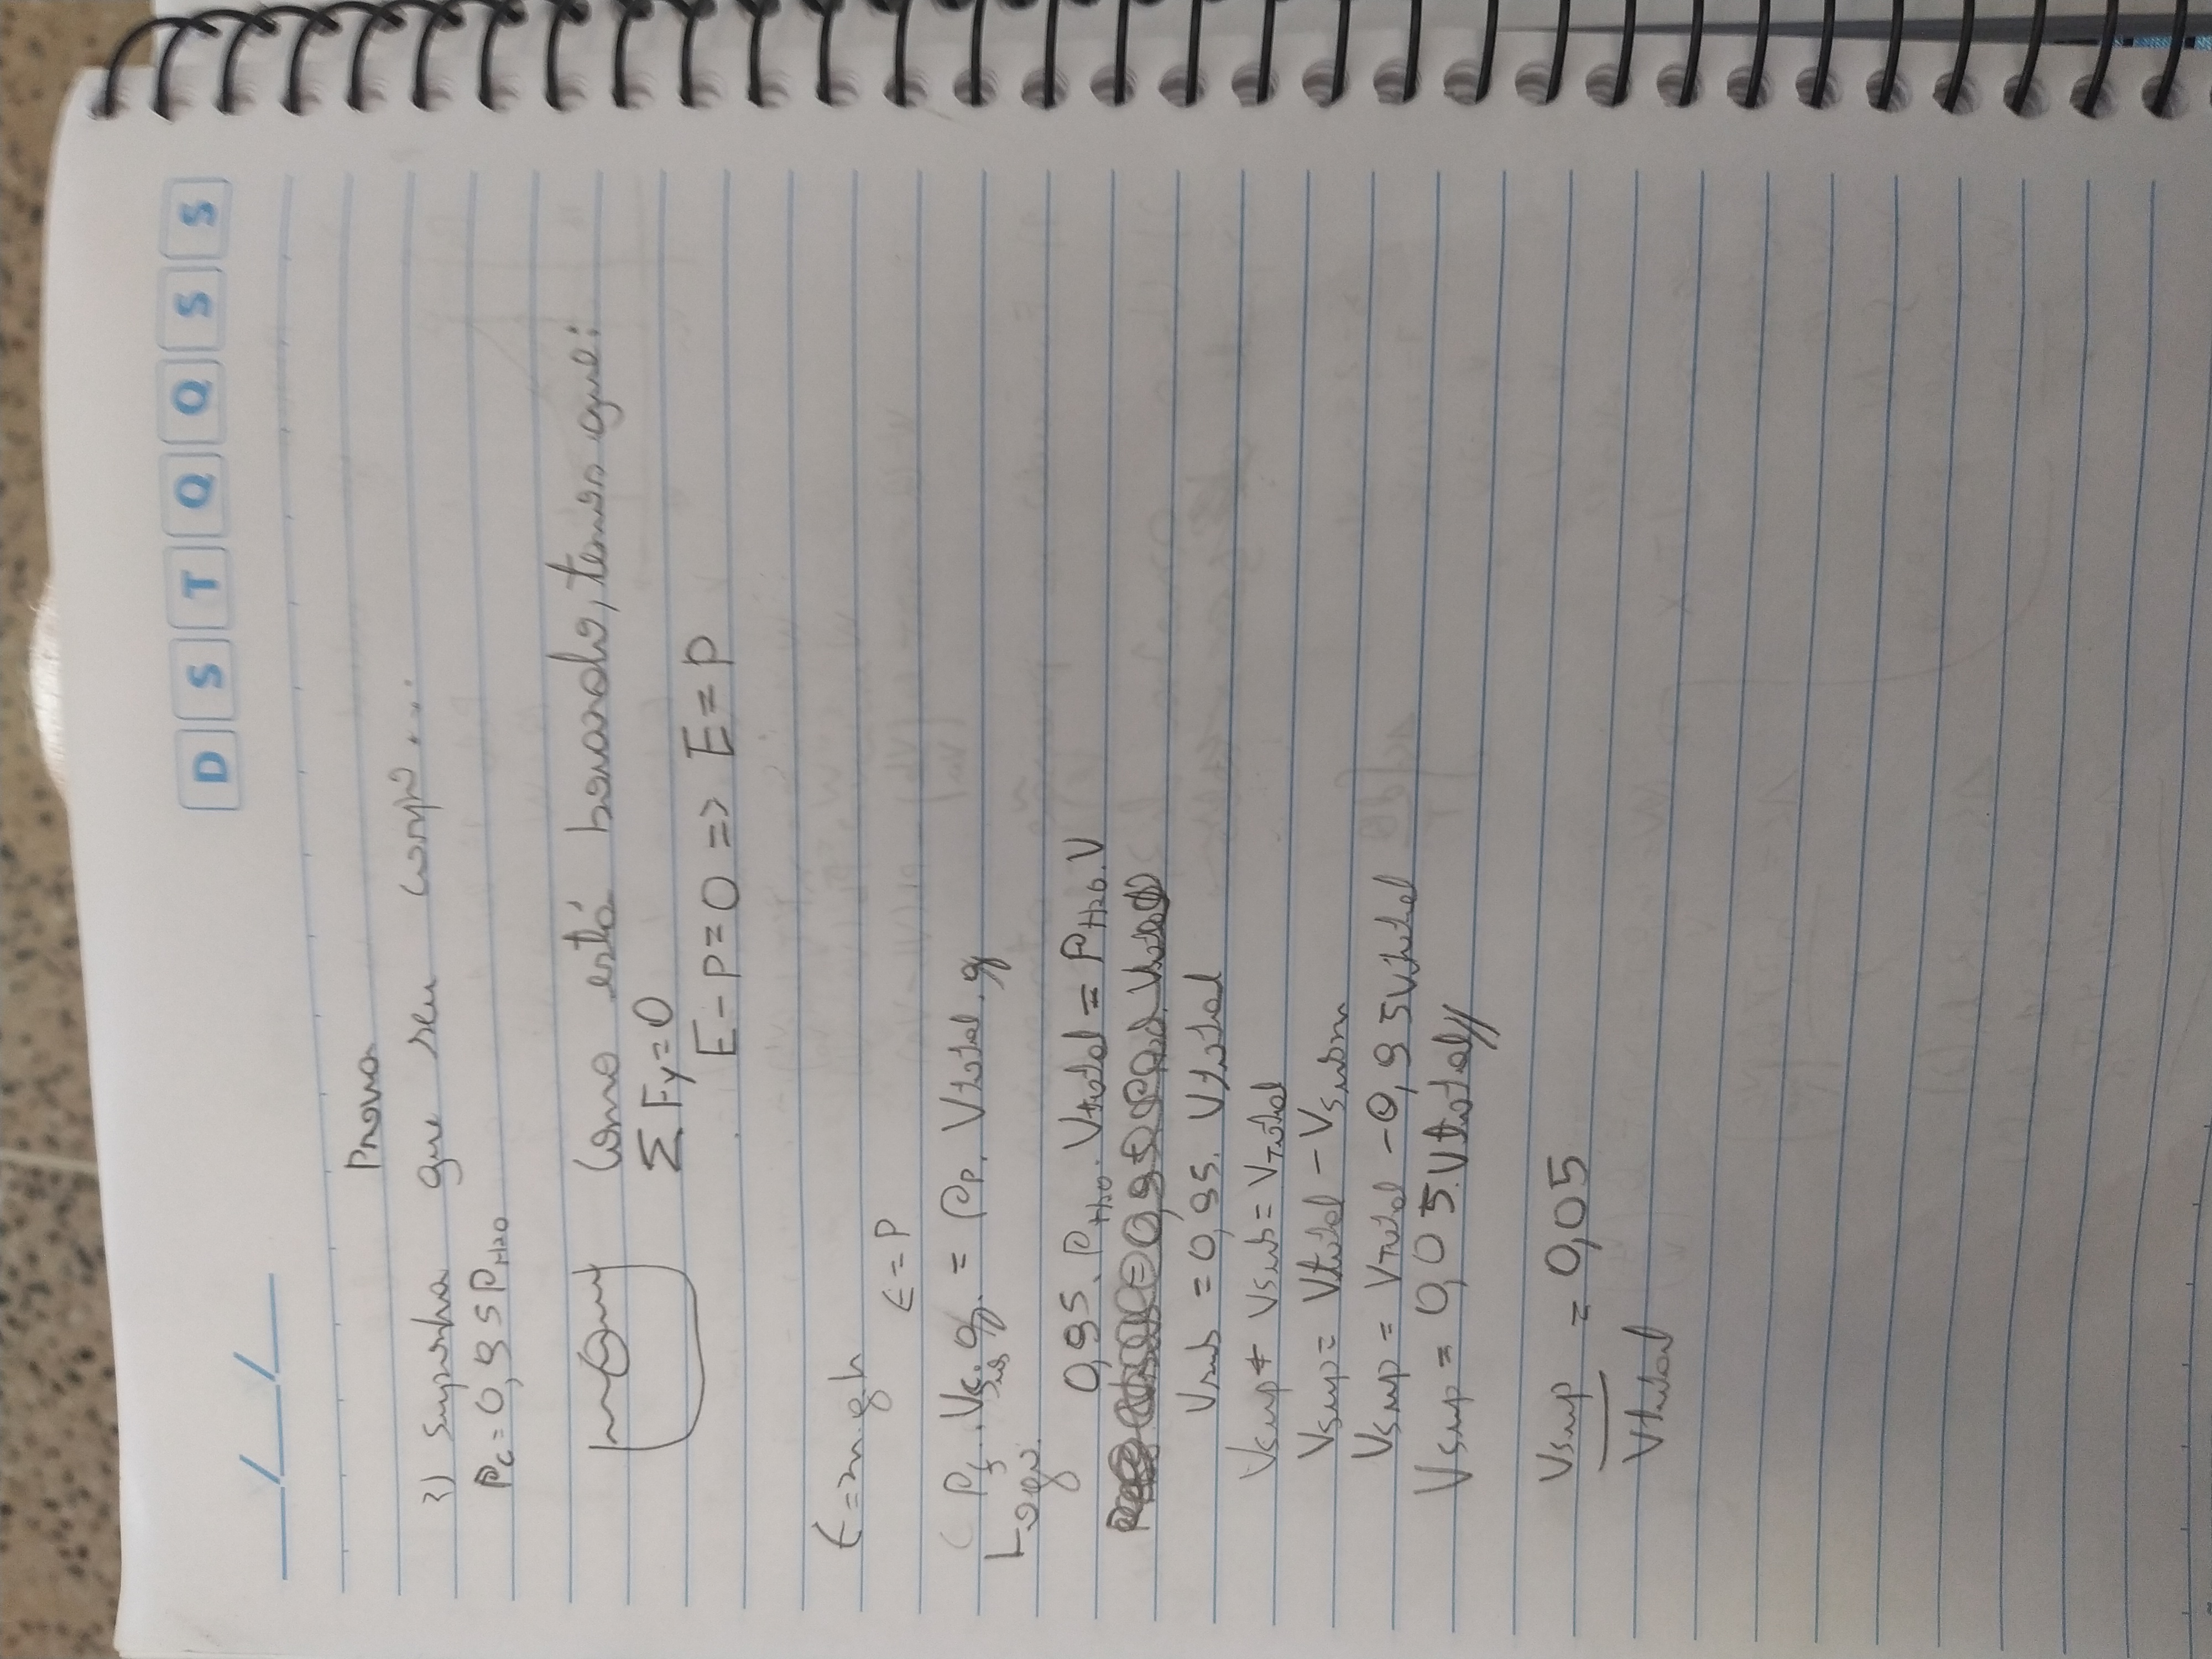 __/__/__
D S T Q Q S S
Prova
3) Suponha que seu corpo...
ρc = 0,95 ρH20
Como está boiando, temos que:
Σ Fy = 0
E - P = 0 => E = P
E = m.g.h
E = P
ρf . Vsub . g = ρp . Vtotal . g
Logo:
0,95 . ρH20 . Vtotal = ρH20 . V
Vsub = 0,95 . Vtotal
Vsup + Vsub = VTotal
Vsup = Vtotal - Vsubm
Vsup = VTotal - 0,95Vtotal
Vsup = 0,05.Vtotal//
Vsup = 0,05
Vtotal